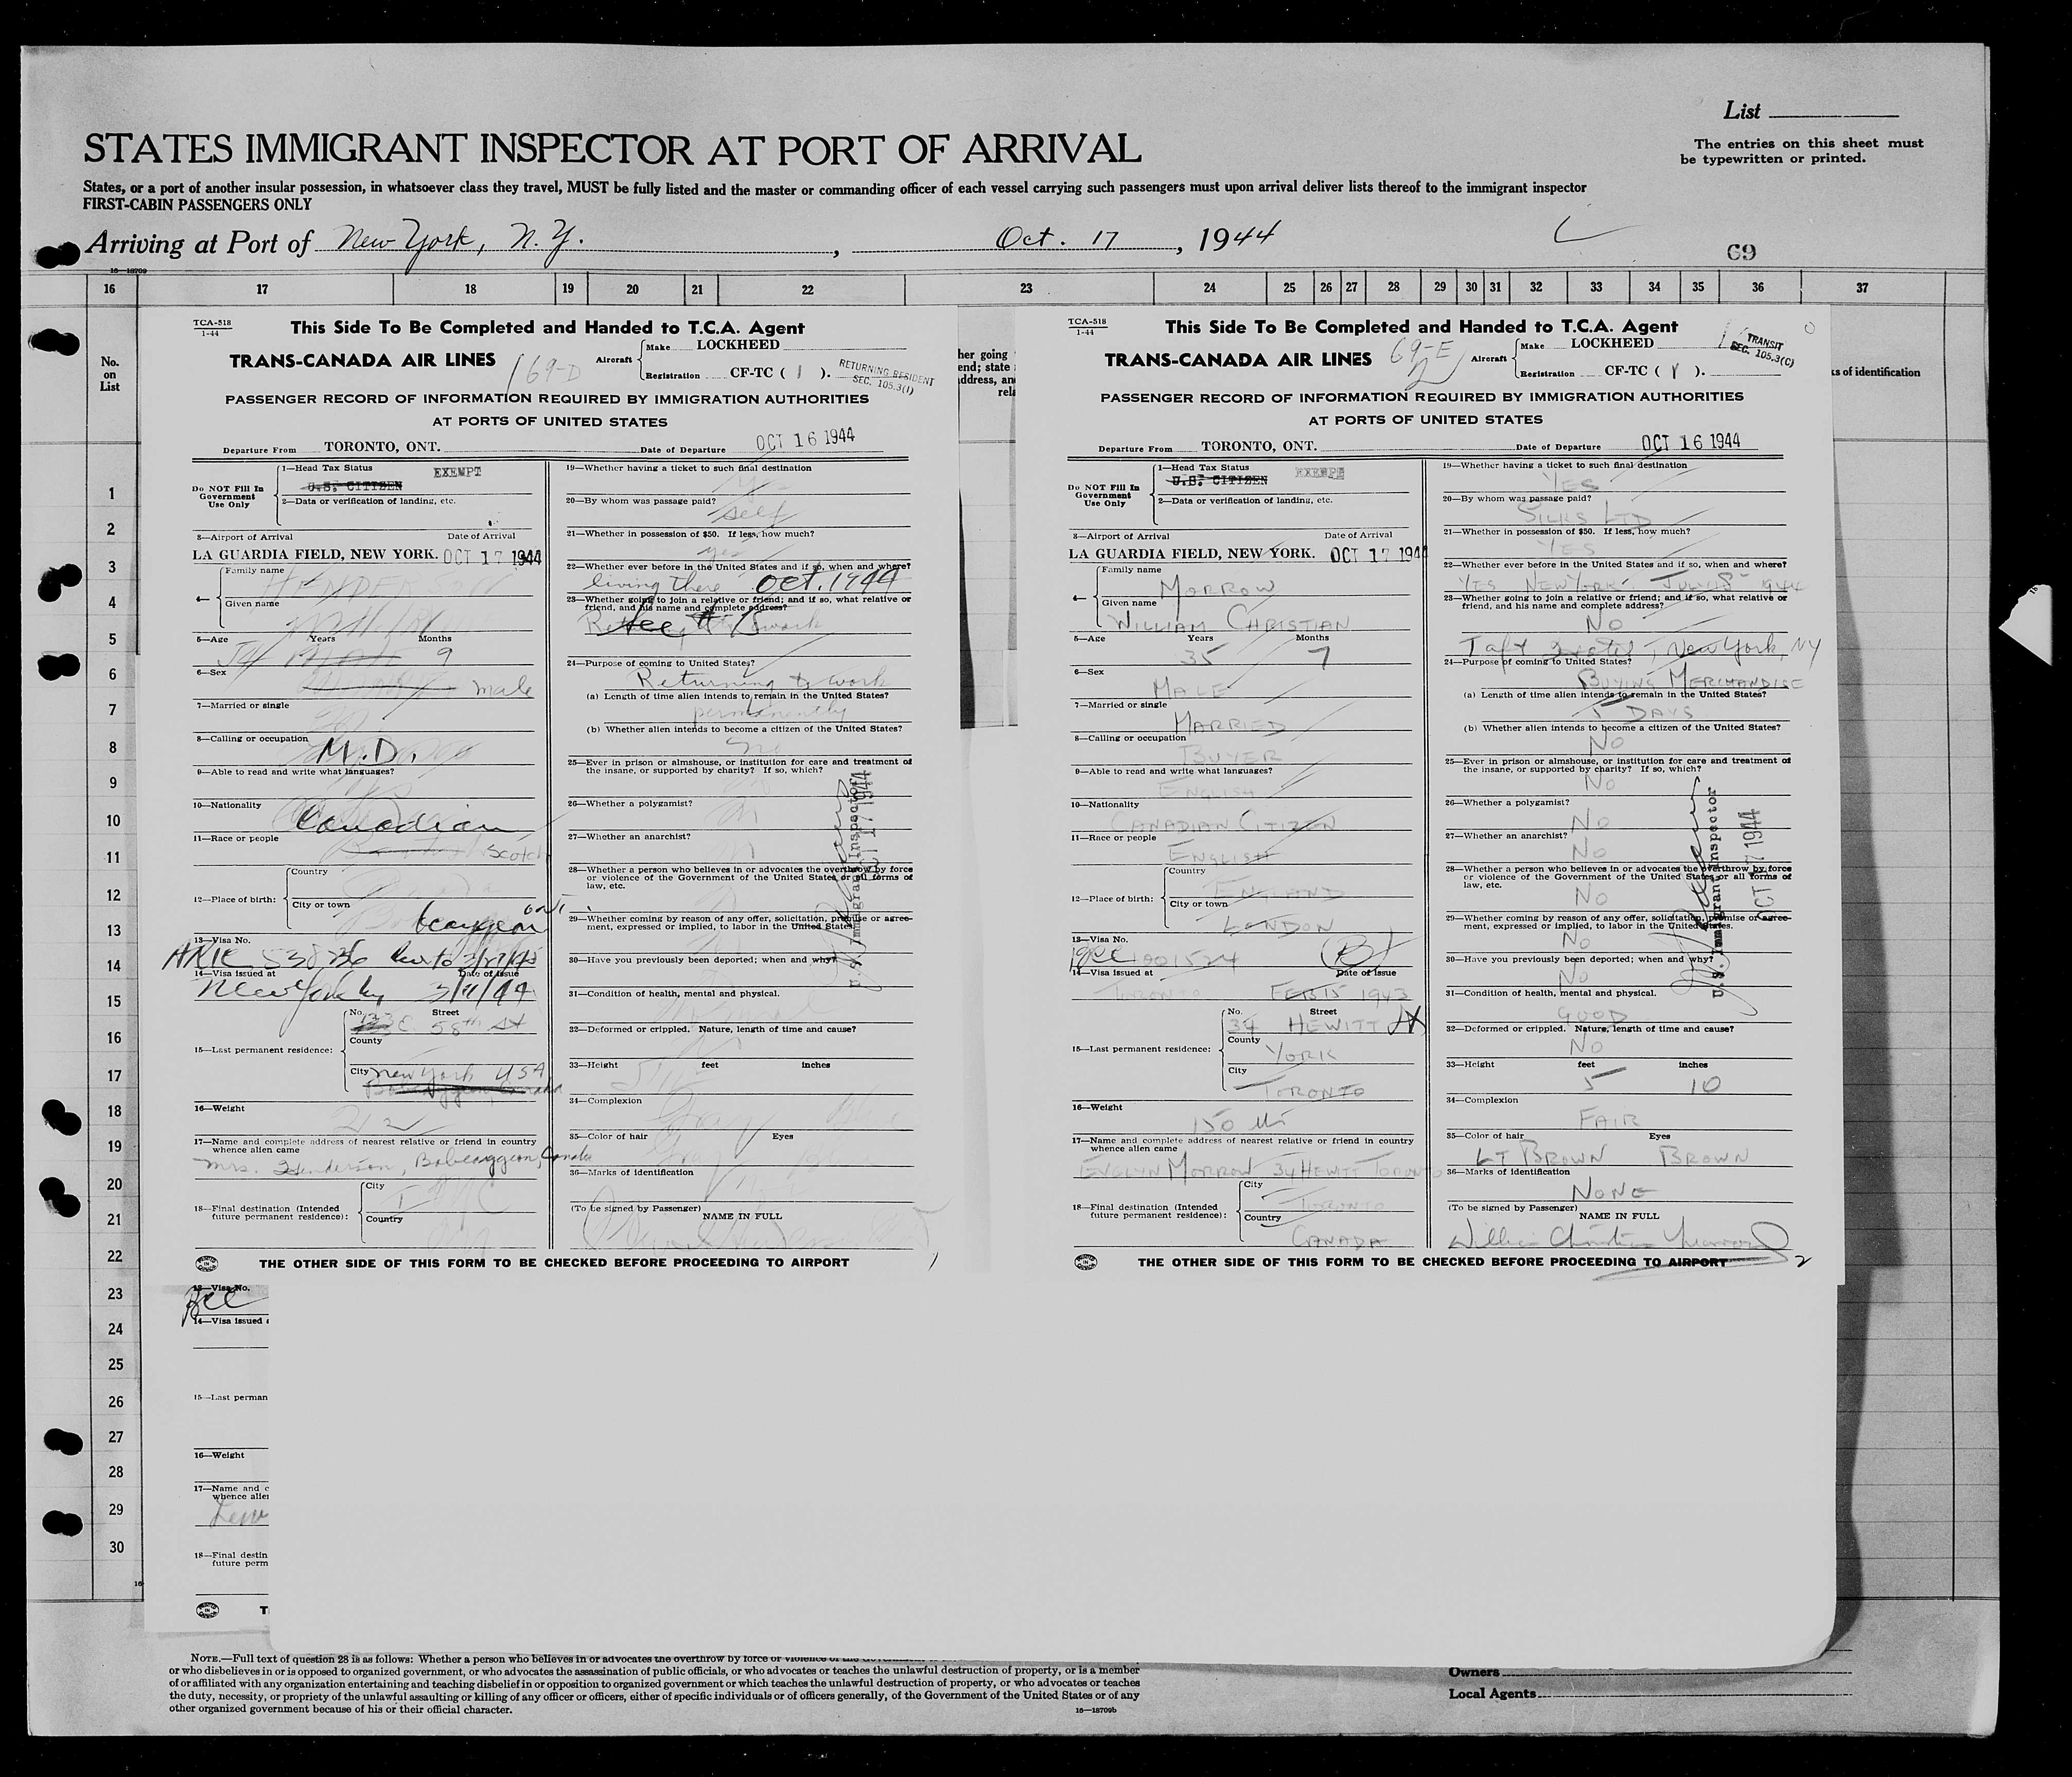 List
The entries on this sheet must
be typewritten or printed.
STATES IMMIGRANT INSPECTOR AT PORT OF ARRIVAL
States, or a port of another insular possession, in whatsoever class they travel, MUST be fully listed and the master or commanding officer of each vessel carrying such passengers must upon arrival deliver lists thereof to the immigrant inspector
FIRST-CABIN PASSENGERS ONLY
Arriving at Port of New York, N.Y. , Oct. 17 , 1944
69
16—18709
16 17 18 19 20 21 22 23 24 25 26 27 28 29 30 31 32 33 34 35 36 37
No.
on
List
1
2
3
4
5
6
7
8
9
10
11
12
13
14
15
16
17
18
19
20
21
22
23
24
25
26
27
28
29
30
TCA-518
1-44
This Side To Be Completed and Handed to T.C.A. Agent
TRANS-CANADA AIR LINES 169-D
Aircraft Make LOCKHEED
Registration CF-TC ( 1 ).
RETURNING RESIDENT
SEC. 105.3(1)
PASSENGER RECORD OF INFORMATION REQUIRED BY IMMIGRATION AUTHORITIES
AT PORTS OF UNITED STATES
Departure From TORONTO, ONT. Date of Departure OCT 16 1944
Do NOT Fill In
Government
Use Only
1—Head Tax Status EXEMPT
U.S. CITIZEN
2—Data or verification of landing, etc.
3—Airport of Arrival Date of Arrival
LA GUARDIA FIELD, NEW YORK. OCT 17 1944
4— Family name
Given name
5—Age Years Months
54 9
6—Sex
male
7—Married or single
8—Calling or occupation
M.D.
9—Able to read and write what languages?
10—Nationality
Canadian
11—Race or people
Scotch
12—Place of birth: Country
City or town
13—Visa No.
14—Visa issued at Date of Issue
New York
15—Last permanent residence: No. Street
E 58th St
County
City New York USA
16—Weight
212
17—Name and complete address of nearest relative or friend in country
whence alien came
Mrs. Henderson, Bobcaygeon, Canada
18—Final destination (Intended
future permanent residence): City
Country
19—Whether having a ticket to such final destination
Yes
20—By whom was passage paid?
Self
21—Whether in possession of $50. If less, how much?
yes
22—Whether ever before in the United States and if so, when and where?
living there Oct. 1944
23—Whether going to join a relative or friend; and if so, what relative or
friend, and his name and complete address?
See # 15
24—Purpose of coming to United States?
Returning to work
(a) Length of time alien intends to remain in the United States?
permanently
(b) Whether alien intends to become a citizen of the United States?
no
25—Ever in prison or almshouse, or institution for care and treatment of
the insane, or supported by charity? If so, which?
26—Whether a polygamist?
27—Whether an anarchist?
28—Whether a person who believes in or advocates the overthrow by force
or violence of the Government of the United States or all forms of
law, etc.
29—Whether coming by reason of any offer, solicitation, promise or agree-
ment, expressed or implied, to labor in the United States.
30—Have you previously been deported; when and why?
31—Condition of health, mental and physical.
32—Deformed or crippled. Nature, length of time and cause?
33—Height feet inches
34—Complexion
35—Color of hair Eyes
36—Marks of identification
(To be signed by Passenger) NAME IN FULL
U.S. Immigrant Inspector
OCT 17 1944
THE OTHER SIDE OF THIS FORM TO BE CHECKED BEFORE PROCEEDING TO AIRPORT
TCA-518
1-44
This Side To Be Completed and Handed to T.C.A. Agent
TRANS-CANADA AIR LINES 69-E
Aircraft Make LOCKHEED
Registration CF-TC ( ).
TRANSIT
SEC. 105.3(C)
PASSENGER RECORD OF INFORMATION REQUIRED BY IMMIGRATION AUTHORITIES
AT PORTS OF UNITED STATES
Departure From TORONTO, ONT. Date of Departure OCT 16 1944
Do NOT Fill In
Government
Use Only
1—Head Tax Status EXEMPT
U.S. CITIZEN
2—Data or verification of landing, etc.
3—Airport of Arrival Date of Arrival
LA GUARDIA FIELD, NEW YORK. OCT 17 194
4— Family name
MORROW
Given name
WILLIAM CHRISTIAN
5—Age Years Months
35 7
6—Sex
MALE
7—Married or single
MARRIED
8—Calling or occupation
BUYER
9—Able to read and write what languages?
ENGLISH
10—Nationality
CANADIAN CITIZEN
11—Race or people
ENGLISH
12—Place of birth: Country
ENGLAND
City or town
LONDON
13—Visa No.
14—Visa issued at Date of Issue
TORONTO FEB 15 1943
15—Last permanent residence: No. Street
34 HEWITT
County
YORK
City
TORONTO
16—Weight
150
17—Name and complete address of nearest relative or friend in country
whence alien came
EVELYN MORROW 34 HEWITT TORONTO
18—Final destination (Intended
future permanent residence): City
TORONTO
Country
CANADA
19—Whether having a ticket to such final destination
YES
20—By whom was passage paid?
SILKS LTD
21—Whether in possession of $50. If less, how much?
YES
22—Whether ever before in the United States and if so, when and where?
YES NEW YORK JULY 1944
23—Whether going to join a relative or friend; and if so, what relative or
friend, and his name and complete address?
NO
Taft Hotel, New York, NY
24—Purpose of coming to United States?
BUYING MERCHANDISE
(a) Length of time alien intends to remain in the United States?
5 DAYS
(b) Whether alien intends to become a citizen of the United States?
NO
25—Ever in prison or almshouse, or institution for care and treatment of
the insane, or supported by charity? If so, which?
NO
26—Whether a polygamist?
NO
27—Whether an anarchist?
NO
28—Whether a person who believes in or advocates the overthrow by force
or violence of the Government of the United States or all forms of
law, etc.
NO
29—Whether coming by reason of any offer, solicitation, promise or agree-
ment, expressed or implied, to labor in the United States.
NO
30—Have you previously been deported; when and why?
NO
31—Condition of health, mental and physical.
GOOD
32—Deformed or crippled. Nature, length of time and cause?
NO
33—Height feet inches
5 10
34—Complexion
FAIR
35—Color of hair Eyes
LT BROWN BROWN
36—Marks of identification
NONE
(To be signed by Passenger) NAME IN FULL
William Christian Morrow
U.S. Immigrant Inspector
OCT 17 1944
THE OTHER SIDE OF THIS FORM TO BE CHECKED BEFORE PROCEEDING TO AIRPORT
2
her going
end; state
address, an
rel
ks of identification
13—Visa No.
14—Visa issued a
15—Last perman
16—Weight
17—Name and c
whence alier
18—Final destin
future perm
T
NOTE.—Full text of question 28 is as follows: Whether a person who believes in or advocates the overthrow by force or violence of the Government
or who disbelieves in or is opposed to organized government, or who advocates the assassination of public officials, or who advocates or teaches the unlawful destruction of property, or is a member
of or affiliated with any organization entertaining and teaching disbelief in or opposition to organized government or which teaches the unlawful destruction of property, or who advocates or teaches
the duty, necessity, or propriety of the unlawful assaulting or killing of any officer or officers, either of specific individuals or of officers generally, of the Government of the United States or of any
other organized government because of his or their official character.
16—18709b
Owners
Local Agents